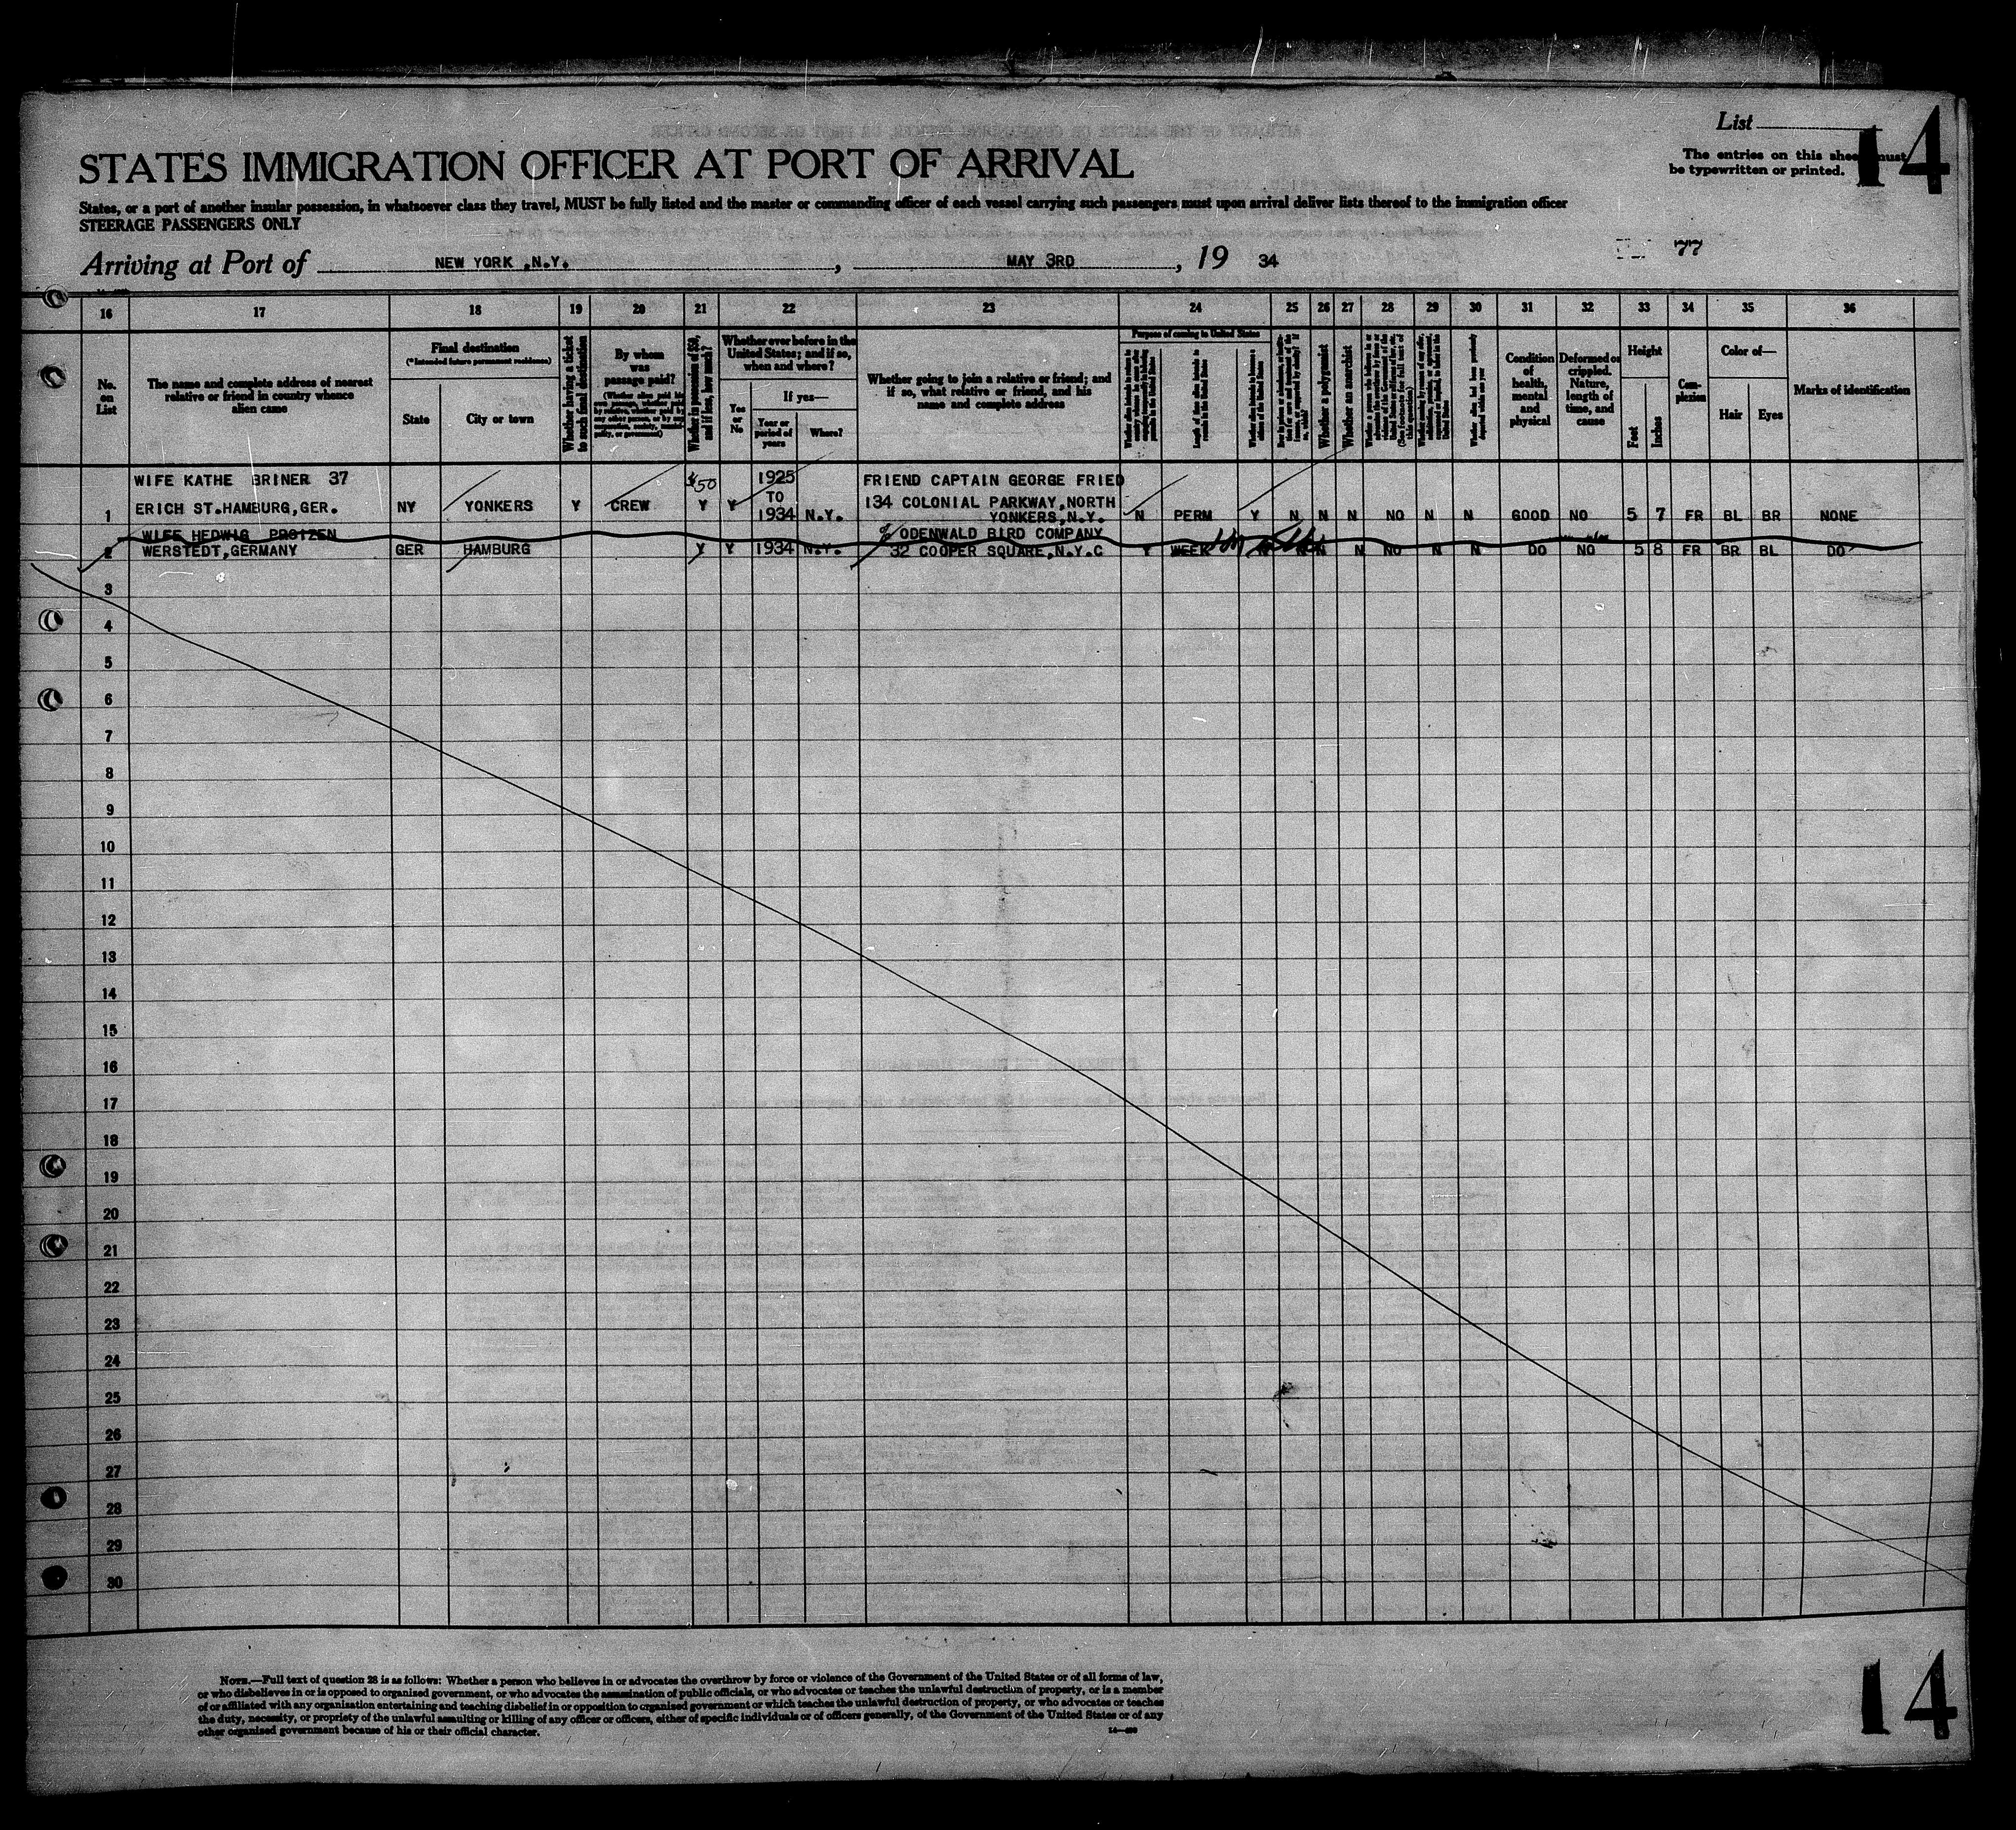 List 14
The entries on this sheet must
be typewritten or printed.
STATES IMMIGRATION OFFICER AT PORT OF ARRIVAL
States, or a port of another insular possession, in whatsoever class they travel, MUST be fully listed and the master or commanding officer of each vessel carrying such passengers must upon arrival deliver lists thereof to the immigration officer
STEERAGE PASSENGERS ONLY
Arriving at Port of NEW YORK ,N.Y. , MAY 3RD , 19 34
77
16 17 18 19 20 21 22 23 24 25 26 27 28 29 30 31 32 33 34 35 36
No.
on
List
The name and complete address of nearest
relative or friend in country whence
alien came
Final destination
(*Intended future permanent residence)
State
City or town
Whether having a ticket
to such final destination
By whom
was
passage paid?
Whether in possession of $50,
and if less, how much?
Whether ever before in the
United States; and if so,
when and where?
Yes
or
No
If yes—
Year or
period of
years
Where?
Whether going to join a relative or friend; and
if so, what relative or friend, and his
name and complete address
Purpose of coming to United States
Whether a polygamist
Whether an anarchist
Condition
of
health,
mental
and
physical
Deformed or
crippled.
Nature,
length of
time, and
cause
Height
Feet
Inches
Com-
plexion
Color of—
Hair
Eyes
Marks of identification
WIFE KATHE BRINER 37 $50 1925 FRIEND CAPTAIN GEORGE FRIED
1 ERICH ST.HAMBURG,GER. NY YONKERS Y CREW Y Y TO 134 COLONIAL PARKWAY,NORTH
1934 N.Y. YONKERS,N.Y. N PERM Y N N N NO N N GOOD NO 5 7 FR BL BR NONE
WIFE HEDWIG PROTZEN % ODENWALD BIRD COMPANY
2 WERSTEDT,GERMANY GER HAMBURG Y Y 1934 N.Y. 32 COOPER SQUARE,N.Y.C Y WEEK N N NO N N DO NO 5 8 FR BR BL DO
3
4
5
6
7
8
9
10
11
12
13
14
15
16
17
18
19
20
21
22
23
24
25
26
27
28
29
30
NOTE.—Full text of question 28 is as follows: Whether a person who believes in or advocates the overthrow by force or violence of the Government of the United States or of all forms of law,
or who disbelieves in or is opposed to organized government, or who advocates the assassination of public officials, or who advocates or teaches the unlawful destruction of property, or is a member
of or affiliated with any organization entertaining and teaching disbelief in or opposition to organized government or which teaches the unlawful destruction of property, or who advocates or teaches
the duty, necessity, or propriety of the unlawful assaulting or killing of any officer or officers, either of specific individuals or of officers generally, of the Government of the United States or of any
other organized government because of his or their official character.
14